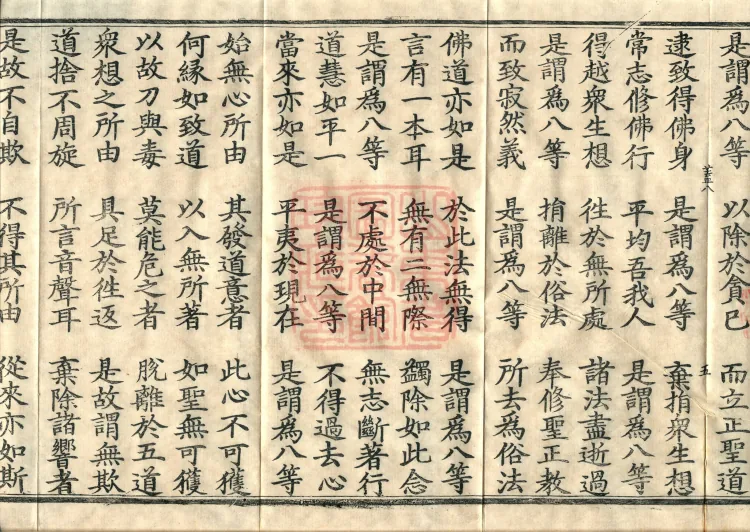 是謂為八等　以除於貪已　而立正聖道
逮致得佛身　是謂為八等　棄捐衆生想
常志修佛行　平均吾我人　是謂為八等
得越衆生想　徃於無所處　諸法盡逝過
是謂為八等　捐離於俗法　奉修聖正教
而致寂然義　是謂為八等　所去為俗法
佛道亦如是　於此法無得　是謂為八等
言有一本耳　無有二無際　蠲除如此念
是謂為八等　不處於中間　無志斷著行
道慧如平一　是謂為八等　不得過去心
當來亦如是　平夷於現在　是謂為八等
始無心所由　其發道意者　此心不可獲
何緣如致道　以入無所著　如聖無可獲
以故刀與毒　莫能危之者　脫離於五道
衆想之所由　具足於徃返　是故謂無欺
道捨不周旋　所言音聲耳　棄除諸響者
是故不自欺　不得其所由　從來亦如斯
五